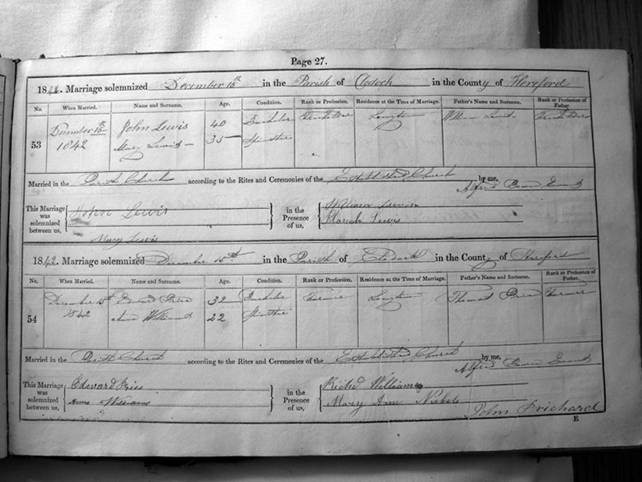 Page 27.
1842. Marriage solemnized December in the Parish of Clodock in the County of Hereford
No. When Married. Name and Surname. Age. Condition. Rank or Profession. Residence at the Time of Marriage. Father's Name and Surname. Rank or Profession of Father.
53 December 1842 John Lewis 40 Bachelor William
Mary Lewis 35 Spinster
Married in the Parish Church according to the Rites and Ceremonies of the Established Church by me,
Alfred
This Marriage was solemnized between us, John Lewis
Mary Lewis
in the Presence of us, William
Hannah Lewis
1842. Marriage solemnized December 15th in the Parish of Clodock in the County of Hereford
No. When Married. Name and Surname. Age. Condition. Rank or Profession. Residence at the Time of Marriage. Father's Name and Surname. Rank or Profession of Father.
54 December 15th 1842 Edward 32 Bachelor Farmer Thomas Farmer
Ann Williams 22 Spinster
Married in the Parish Church according to the Rites and Ceremonies of the Established Church by me,
Alfred
This Marriage was solemnized between us, Edward
Anne Williams
in the Presence of us, Richd Williams
Mary Ann
John Prichard
E